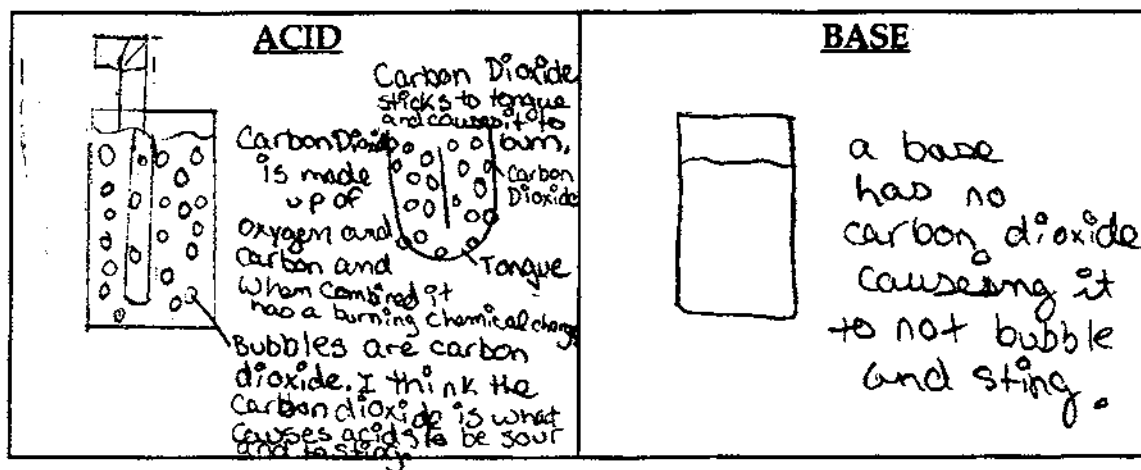 ACID
Carbon Dioxide
sticks to tongue
and causes it to
burn.
Carbon Dioxide
is made
up of
oxygen and
carbon and
when combined it
has a burning chemical change
Carbon
Dioxide
Tongue
Bubbles are carbon
dioxide. I think the
carbon dioxide is what
causes acids to be sour
and to sting.
BASE
a base
has no
carbon dioxide
causeing it
to not bubble
and sting.